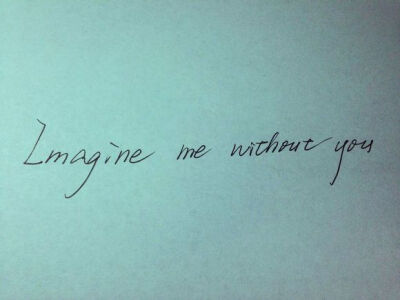 Imagine me without you